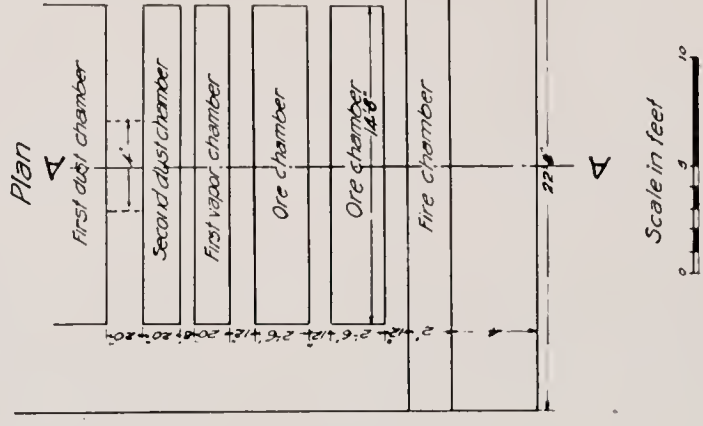 Plan
A
First dust chamber
4'
Second dust chamber
First vapor chamber
Ore chamber
Ore chamber
14'8"
Fire chamber
20" 20" 8" 20" 12" 2'-6" 12" 2'-6" 12" 2' 4'
22'8"
A
Scale in feet
0 5 10